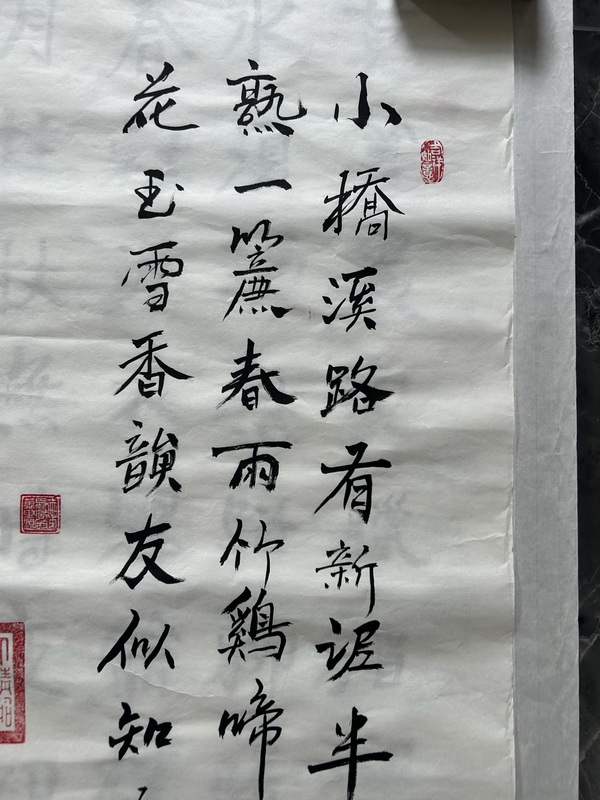 小橋溪路有新泥半
熟一簾春雨竹鷄啼
花玉雪香韻友似知